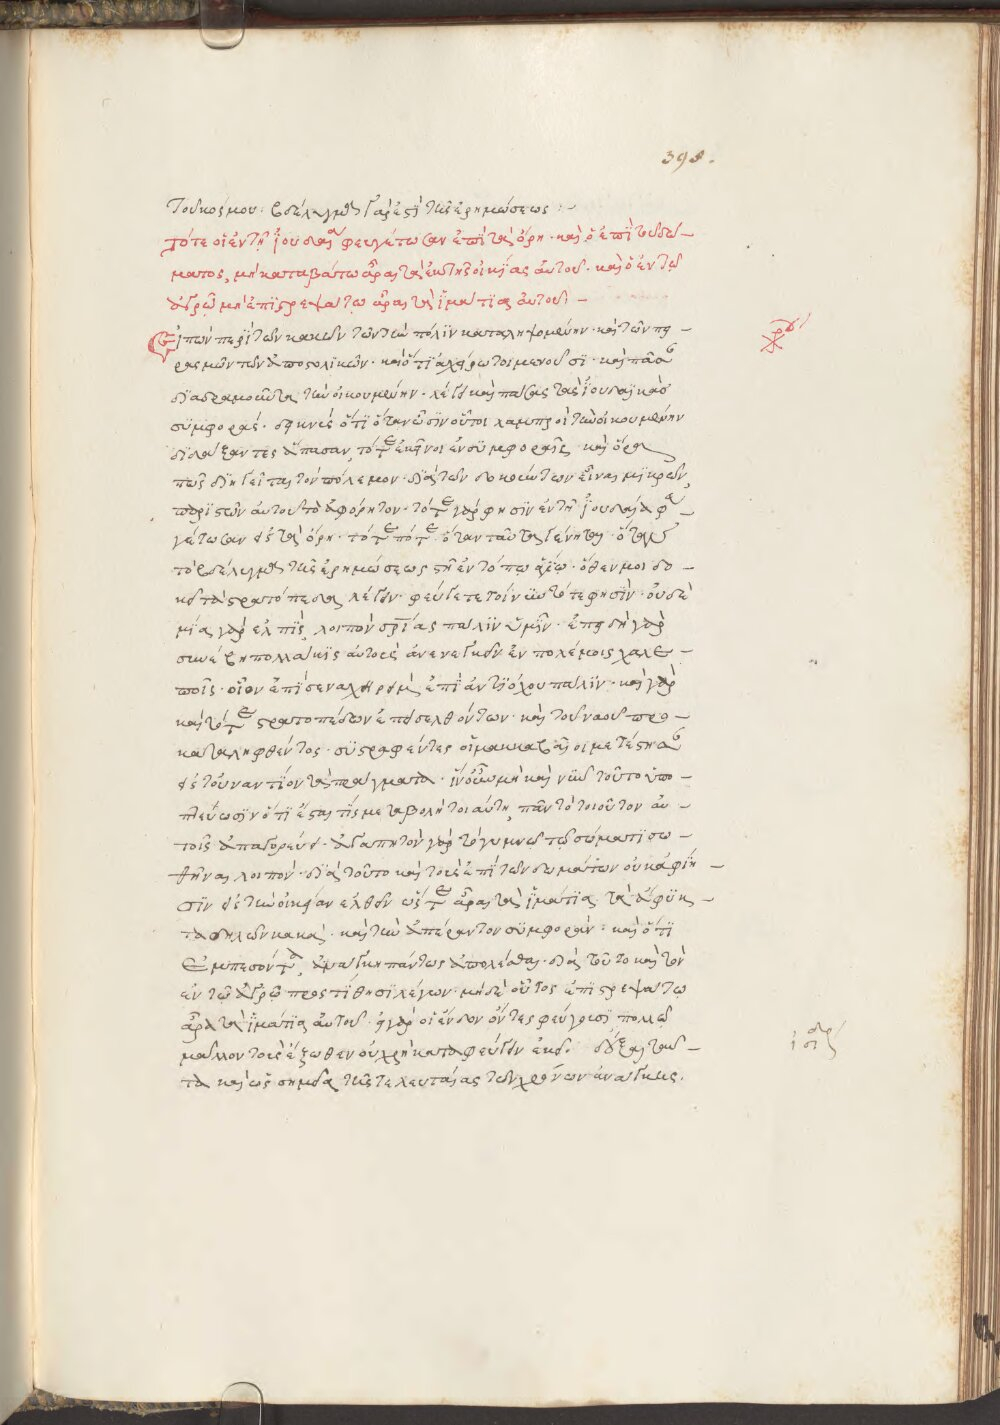 398.
τοῦ κόσμου: βδέλυγμα γάρ ἐστι τῆς ἐρημώσεως :–
τότε οἱ ἐν τῇ ἰουδαία φευγέτωσαν ἐπὶ τὰ ὄρη· καὶ ὁ ἐπὶ τοῦ δώ–
ματος, μὴ καταβάτω ἆραι τὰ ἐκ τῆς οἰκίας αὐτοῦ. καὶ ὁ ἐν τῷ
ἀγρῷ μὴ ἐπιστρεψάτω ἆραι τὰ ἱμάτια αὐτοῦ: –
Εἰπὼν περὶ τῶν κακῶν τῶν τὴν πόλιν καταληψομένην· καὶ τῶν πει–
ρασμῶν τῶν ἀποστολικῶν· καὶ ὅτι ἀχείρωτοι μενοῦσι· καὶ πᾶσαν
διαδραμοῦνται τὴν οἰκουμένην· λέγει καὶ πάσας τὰς ἰουδαϊκὰς
συμφοράς· δεικνὺς ὅτι ὅταν ὦσιν οὗτοι λαμπροὶ τὴν οἰκουμένην
διδάξαντες ἅπασαν, τότε ἐκεῖνοι ἐν συμφοραῖς· καὶ ὅρα
πῶς διηγεῖται τὸν πόλεμον· διὰ τῶν δοκούντων εἶναι μικρῶν,
παριστῶν αὐτοῦ τὸ ἀφόρητον· τότε γάρ φησιν ἐν τῇ ἰουδαία φευ–
γέτωσαν εἰς τὰ ὄρη· τότε πότε· ὅταν ταῦτα γένηται· ὅταν
τὸ βδέλυγμα τῆς ἐρημώσεως στῇ ἐν τόπω ἁγίω· ὅθεν μοι δο–
κεῖ τὰ στρατόπεδα λέγειν· φεύγετε τοίνυν τότε φησίν· οὐδε
μία γὰρ ἐλπὶς, λοιπὸν σωτηρίας πάλιν ὑμῖν· ἐπειδὴ γὰρ
συνέβη πολλάκις αὐτοὺς ἀνενεγκεῖν ἐν πολέμοις χαλε–
ποῖς· οἷον ἐπὶ σεναχηρεὶμ, ἐπὶ ἀντιόχου πάλιν· καὶ γὰρ
καὶ τότε στρατοπέδων ἐπεισελθόντων· καὶ τοῦ ναοῦ προ–
καταληφθέντος· συστραφέντες οἱ μακκαβαῖοι μετέστησαν
εἰς τοὐναντίον τὰ πράγματα· ἵν' οὖν μὴ καὶ νῦν τοῦτο ὑπο–
πτεύωσιν ὅτι ἔσται τίς μεταβολὴ τοιαύτη, πᾶν τὸ τοιοῦτον αὐ–
τοῖς ἀπαγορεύει· ἀγαπητὸν γὰρ τὸ γυμνῷ τῷ σώματι σω–
θῆναι λοιπόν· διὰ τοῦτο καὶ τοὺς ἐπὶ τῶν δωμάτων οὐκ ἀφίη–
σιν εἰς τὴν οἰκίαν ἐλθεῖν ὥστε ἆραι τὰ ἱμάτια, τὰ ἄφυκ–
τα δηλῶν κακά· καὶ τὴν ἀπέραντον συμφοράν: καὶ ὅτι
ἐμπεσόντα, ἀνάγκη πάντως ἀπολέσθαι· διὰ τοῦτο καὶ τὸν
ἐν τῷ ἀγρῷ προστίθησι λέγων· μηδὲ οὗτος ἐπιστρεψάτω
ἆραι τὰ ἱμάτια αὐτοῦ· εἰ γὰρ οἱ ἔνδον ὄντες φεύγουσι, πολλῷ
μᾶλλον τοὺς ἔξωθεν οὐ χρὴ καταφεύγειν ἐκεῖ. δέξαι ταῦ–
τα καὶ ὡς σημεῖα τῆς τελευταίας τῶν χρόνων ἀνάγκης.